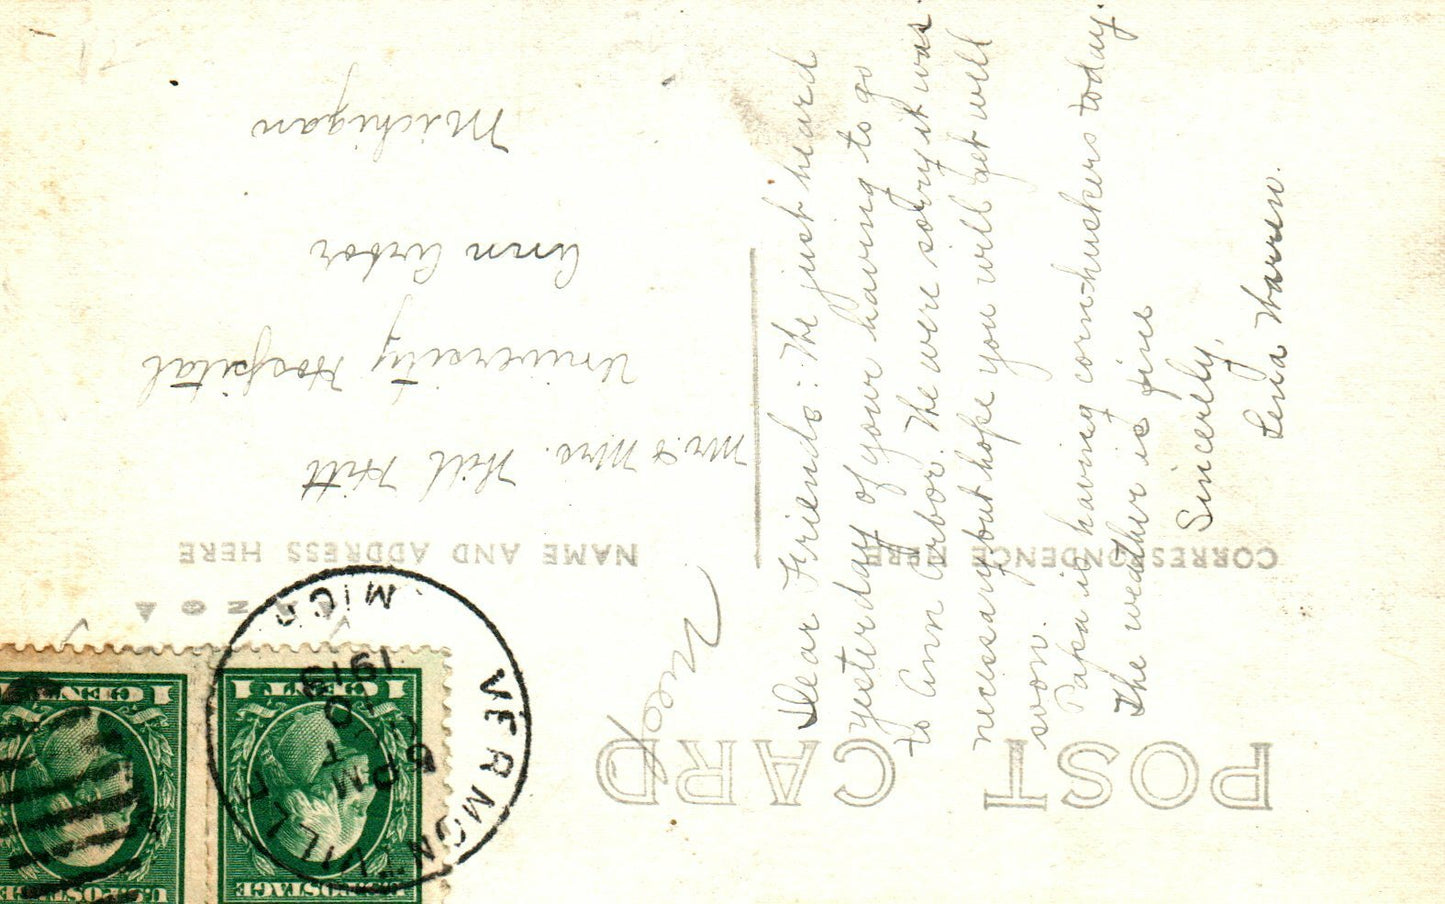 POST CARD
CORRESPONDENCE HERE
NAME AND ADDRESS HERE
Dear Friends: The just heard
yesterday of your having to go
to Ann Arbor. The were sorry it was
necessary but hope you will get well
soon.
Papa is having corn-huskers today.
The weather is fine
Sincerely,
Lena Warren.
Mr. & Mrs. Will Hitt
University Hospital
Ann Arbor
Michigan
VERMONTVILLE
MICH
5 PM
1913
U.S. POSTAGE
1 CENT 1
U.S. POSTAGE
1 CENT